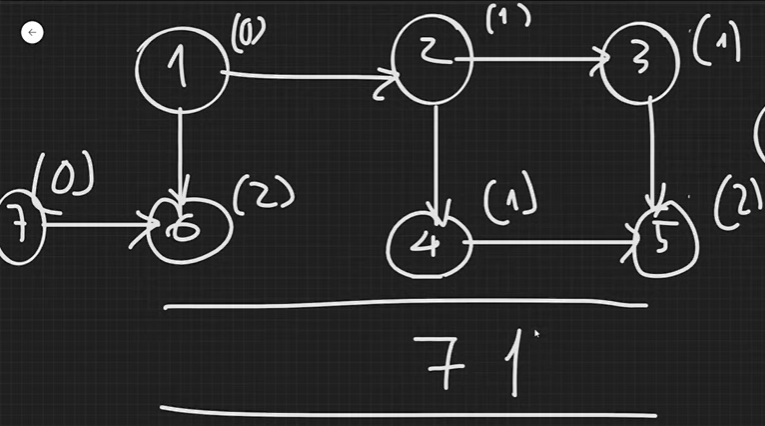 1 (0) 2 (1) 3 (1)
7 (0) 6 (2) 4 (1) 5 (2)
7 1